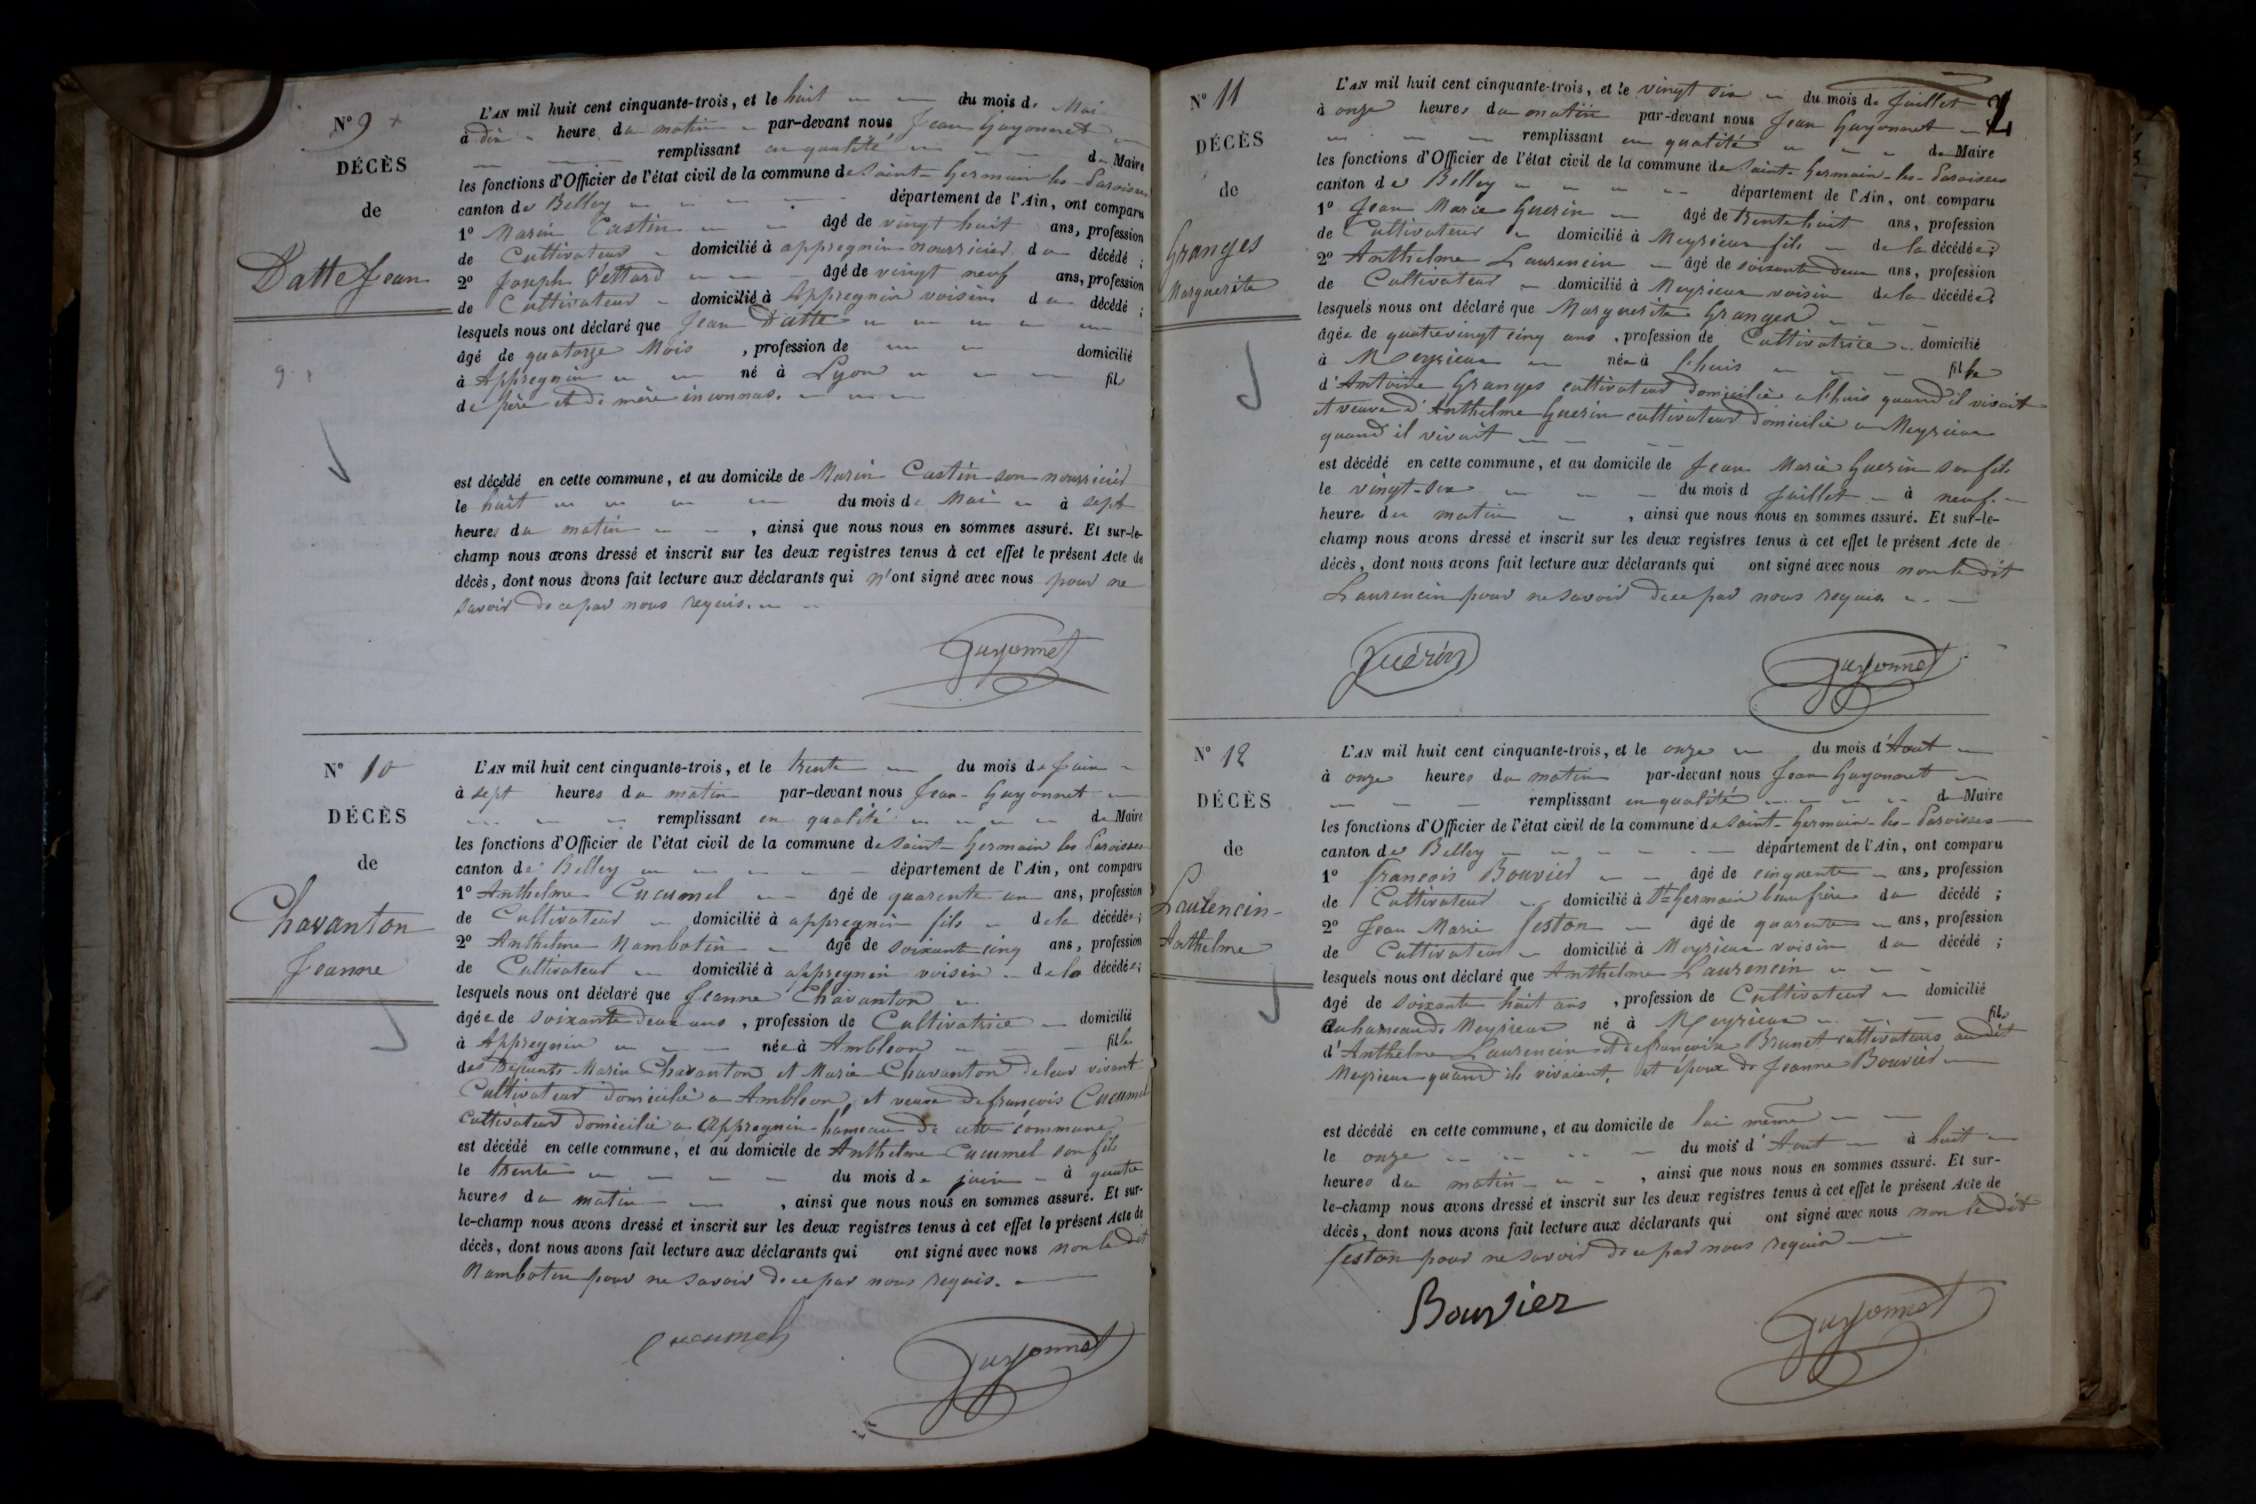 N° 9
DÉCÈS
de
Datte Jean
L'AN mil huit cent cinquante-trois, et le huit du mois de Mai
à dix heure du matin par-devant nous Jean Guyonnet
remplissant en qualité de Maire
les fonctions d'Officier de l'état civil de la commune de Saint-Germain-les-Paroisses
canton de Belley département de l'Ain, ont comparu
1° Marin Castin âgé de vingt huit ans, profession
de Cultivateur domicilié à appregnin nourricier du décédé ;
2° Joseph Vettard âgé de vingt neuf ans, profession
de Cultivateur domicilié à Appregnin voisin du décédé ;
lesquels nous ont déclaré que Jean Datte
âgé de quatorze Mois , profession de domicilié
à Appregnin né à Lyon fils
de père et de mère inconnus.
est décédé en cette commune, et au domicile de Marin Castin son nourricier
le huit du mois de Mai à sept
heures du matin , ainsi que nous nous en sommes assuré. Et sur-le-
champ nous avons dressé et inscrit sur les deux registres tenus à cet effet le présent Acte de
décès, dont nous avons fait lecture aux déclarants qui n'ont signé avec nous pour ne
savoir de ce par nous requis.
Guyonnet
N° 10
DÉCÈS
de
Chavanton
Jeanne
L'AN mil huit cent cinquante-trois, et le trente du mois de Juin
à sept heures du matin par-devant nous Jean Guyonnet
remplissant en qualité de Maire
les fonctions d'Officier de l'état civil de la commune de Saint-Germain les Paroisses
canton de Belley département de l'Ain, ont comparu
1° Anthelme Cucumel âgé de quarente un ans, profession
de Cultivateur domicilié à appregnin fils de la décédée ;
2° Anthelme Nambotin âgé de soixante cinq ans, profession
de Cultivateur domicilié à appregnin voisin de la décédée ;
lesquels nous ont déclaré que Jeanne Chavanton
âgée de soixante deux ans , profession de Cultivatrice domicilié
à Appregnin née à Ambleon fille
des Défunts Marin Chavanton et Marie Chavanton de leur vivant
Cultivateur domicilié à Ambleon, et veuve de françois Cucumel
Cultivateur domicilié à Appregnin hameau de cette commune
est décédé en cette commune, et au domicile de Anthelme Cucumel son fils
le trente du mois de juin à quatre
heures du matin , ainsi que nous nous en sommes assuré. Et sur-
le-champ nous avons dressé et inscrit sur les deux registres tenus à cet effet le présent Acte de
décès, dont nous avons fait lecture aux déclarants qui ont signé avec nous non le dit
Nambotin pour ne savoir de ce par nous requis.
Cucumel
Guyonnet
2
N° 11
DÉCÈS
de
Granges
Marguerite
L'AN mil huit cent cinquante-trois, et le vingt six du mois de Juillet
à onze heures du matin par-devant nous Jean Guyonnet
remplissant en qualité de Maire
les fonctions d'Officier de l'état civil de la commune de Saint-Germain-les-Paroisses
canton de Belley département de l'Ain, ont comparu
1° Jean Marie Guerin âgé de trente huit ans, profession
de Cultivateur domicilié à Meyrieu fils de la décédée ;
2° Anthelme Laurencin âgé de soixante deux ans, profession
de Cultivateur domicilié à Meyrieu voisin de la décédée ;
lesquels nous ont déclaré que Marguerite Granges
âgée de quatrevingt cinq ans , profession de Cultivatrice domicilié
à Meyrieu née à Lhuis fille
d'Antoine Granges cultivateur domicilié à Lhuis quand il vivait
et veuve d'Anthelme Guerin cultivateur domicilié à Meyrieu
quand il vivait
est décédé en cette commune, et au domicile de Jean Marie Guerin son fils
le vingt-six du mois d Juillet à neuf
heures du matin , ainsi que nous nous en sommes assuré. Et sur-le-
champ nous avons dressé et inscrit sur les deux registres tenus à cet effet le présent Acte de
décès, dont nous avons fait lecture aux déclarants qui ont signé avec nous non le dit
Laurencin pour ne savoir de ce par nous requis.
Guérin
Guyonnet
N° 12
DÉCÈS
de
Laurencin
Anthelme
L'AN mil huit cent cinquante-trois, et le onze du mois d'Aout
à onze heures du matin par-devant nous Jean Guyonnet
remplissant en qualité de Maire
les fonctions d'Officier de l'état civil de la commune de Saint-Germain-les-Paroisses
canton de Belley département de l'Ain, ont comparu
1° françois Bouvier âgé de cinquante ans, profession
de Cultivateur domicilié à St Germain beau frère du décédé ;
2° Jean Marie Feston âgé de quarente ans, profession
de Cultivateur domicilié à Meyrieu voisin du décédé ;
lesquels nous ont déclaré que Anthelme Laurencin
âgé de soixante huit ans , profession de Cultivateur domicilié
au hameau de Meyrieu né à Meyrieu fils
d'Anthelme Laurencin et de françoise Brunet cultivateurs audit
Meyrieu quand ils vivaient, et époux de Jeanne Bouvier
est décédé en cette commune, et au domicile de lui même
le onze du mois d'Aout à huit
heures du matin , ainsi que nous nous en sommes assuré. Et sur-
le-champ nous avons dressé et inscrit sur les deux registres tenus à cet effet le présent Acte de
décès, dont nous avons fait lecture aux déclarants qui ont signé avec nous non le dit
Feston pour ne savoir de ce par nous requis
Bouvier
Guyonnet